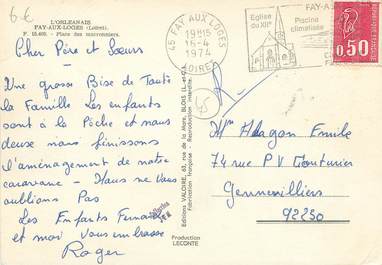 6€
L'ORLEANAIS
FAY-AUX-LOGES (Loiret)
Place des marronniers.
Cher Père et Sœurs
Une grosse Bise de Toute
la Famille les enfants
sont à la Pêche et nous
deux nous finissons
l'aménagement de notre
caravane - Nous ne Vous
oublions Pas
Les Enfants Fernande
et moi Vous embrasse
Roger
Editions VALOIRE, 63, rue de la Mare, BLOIS (L.-et-C.)
Fabrication Française - Reproduction interdite.
Production
LECONTE
45 FAY AUX LOGES
19H15
16-4
1974
LOIRET
Eglise
du XIIe
Piscine
climatisée
FAY-A
0,50
45
Mr Adagon Emile
74 rue P V Couturier
Gennevilliers
92230